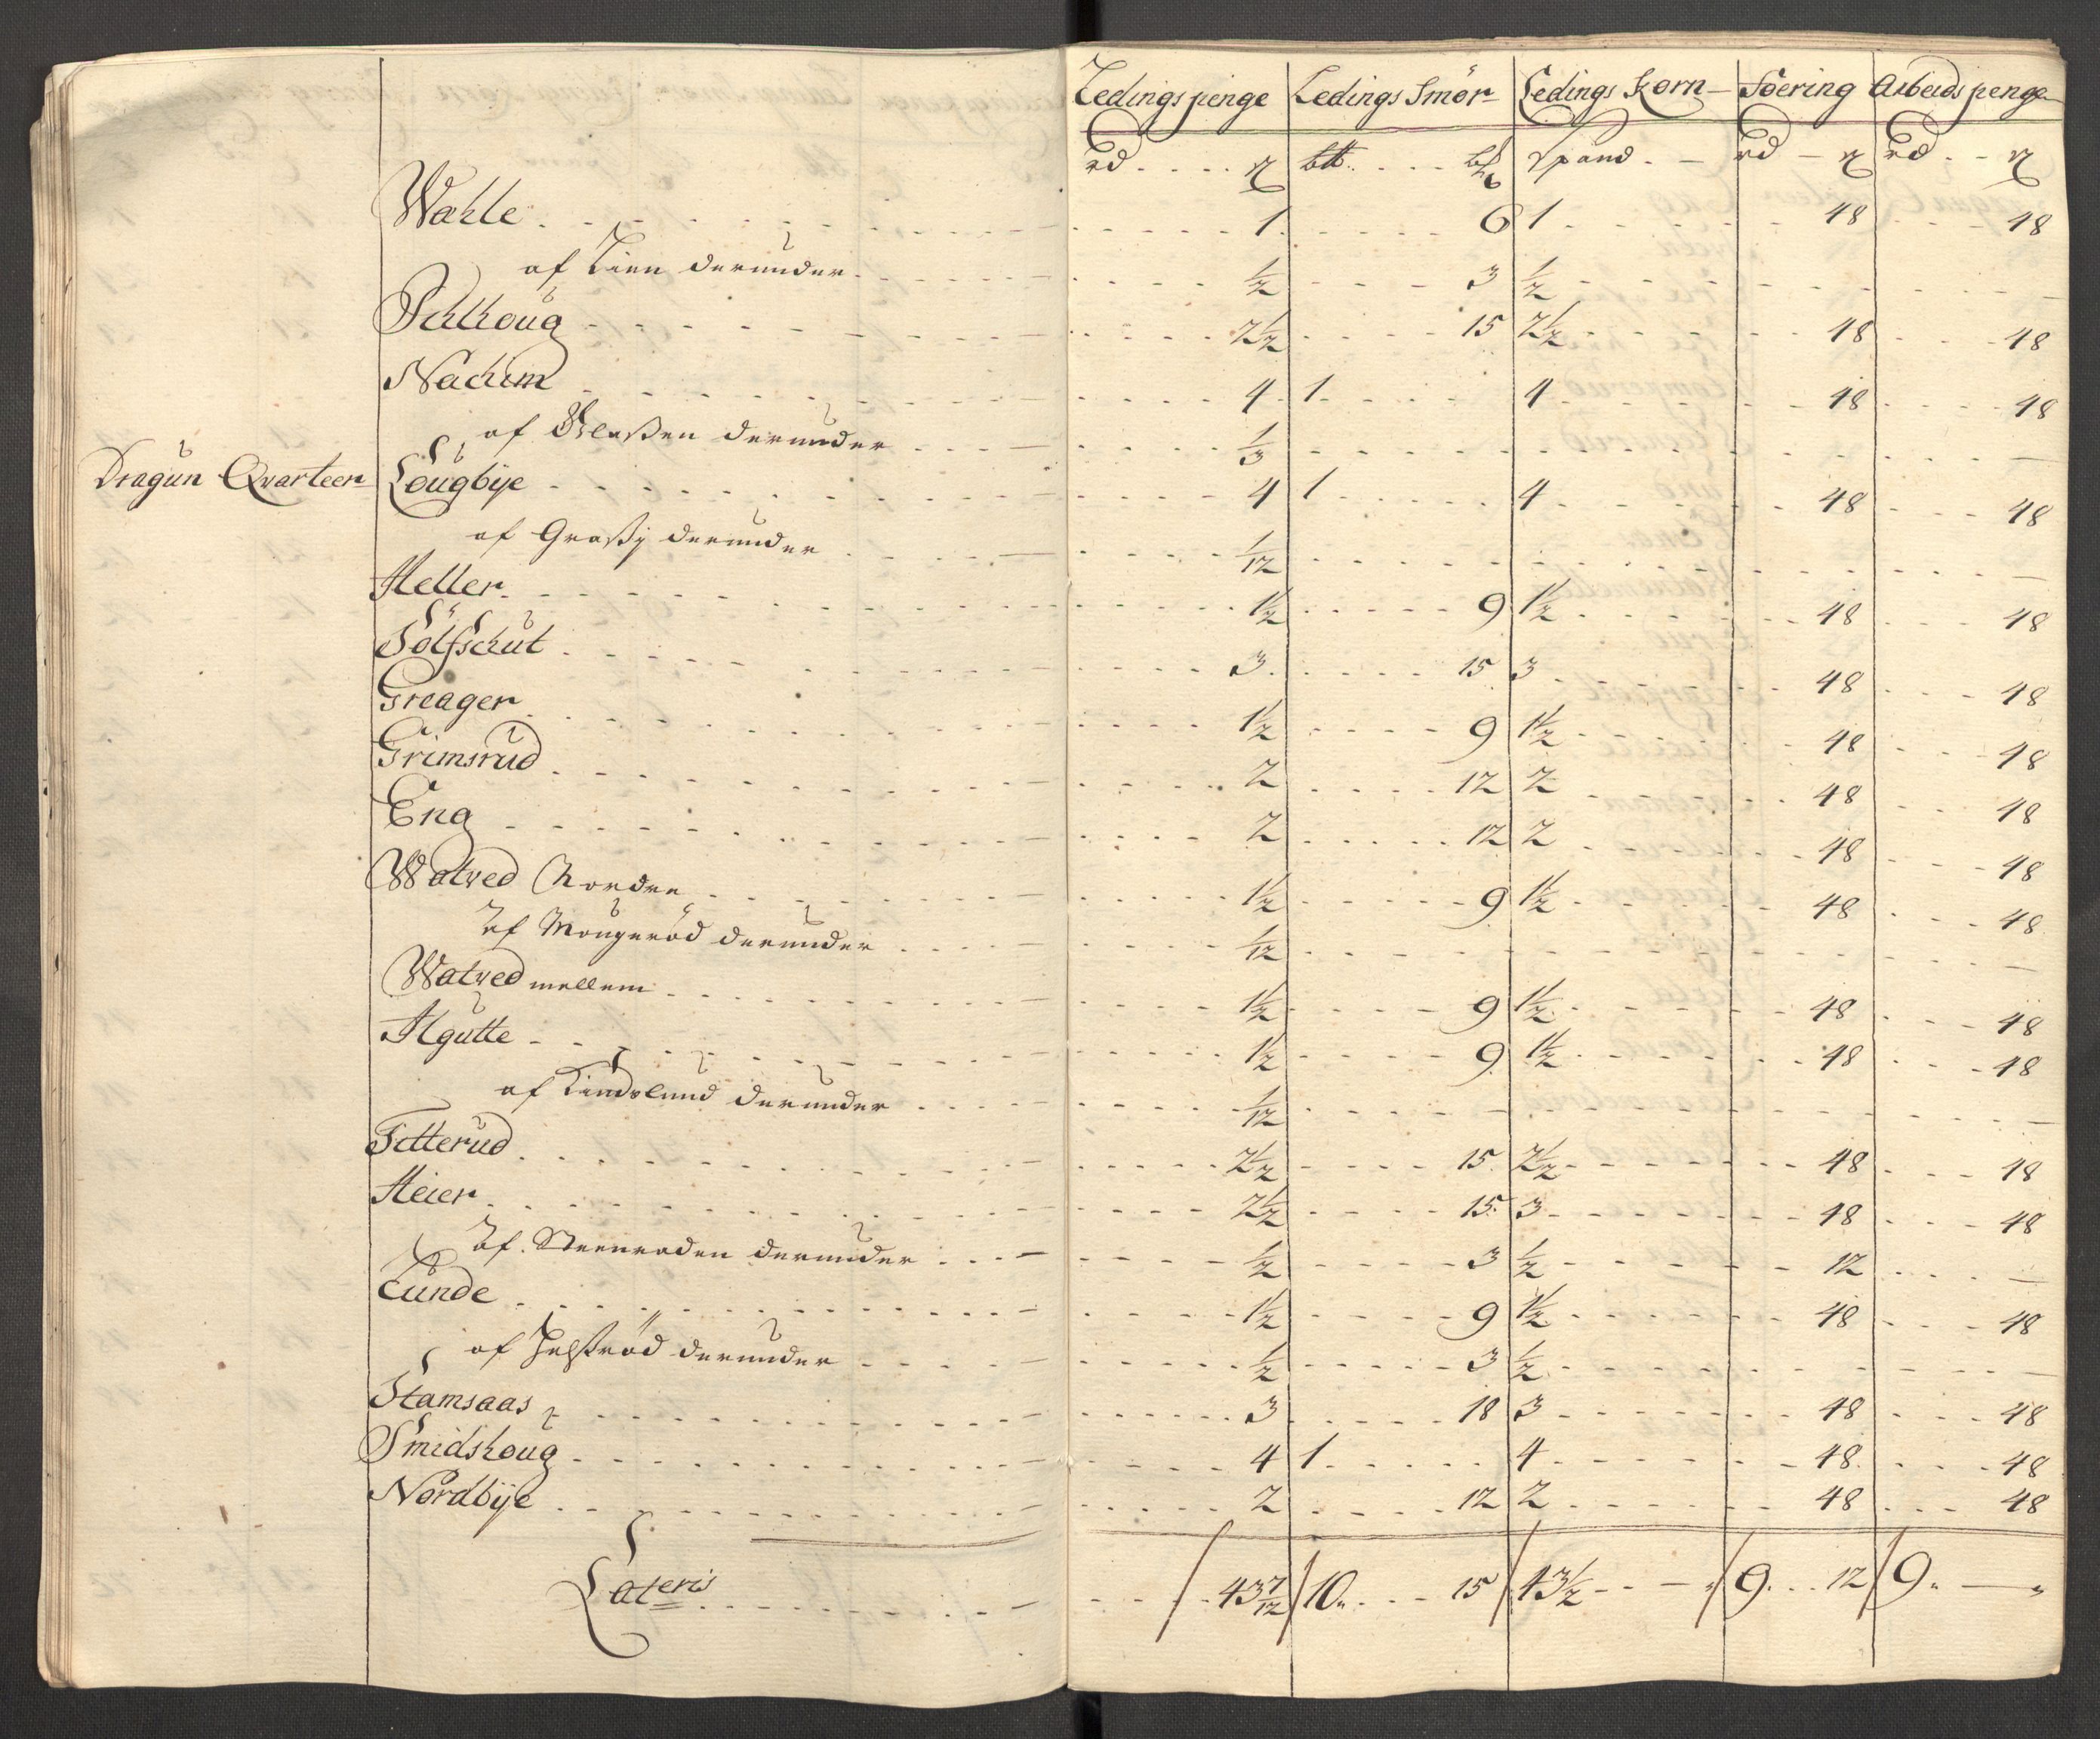 Ledings penge Ledings Smör Ledings Korn Foering Arbeids penge
rd ß b℔ Spand rd ß rd ß
Wahle 1 6 1 48 48
af Lien derunder ½ 3 ½
Schoug 2½ 15 2½ 48 48
Nachim 4 1 4 48 48
af derunder ⅓
Dragun Qvarteer Lougbÿe 4 1 4 48 48
af derunder 1/12
Heller 1½ 9 1½ 48 48
Sölfschut 3 15 3 48 48
Greager 1½ 9 1½ 48 48
Grimsrud 2 12 2 48 48
Eng 2 12 2 48 48
Watved Nordre 1½ 9 1½ 48 48
af Mougeröd derunder 1/12
Watved mellem 1½ 9 1½ 48 48
Agutte 1½ 9 1½ 48 48
af Lindslund derunder 1/12
Tetterud 2½ 15 2½ 48 48
Heier 2½ 15 3 48 48
af Steenroden derunder ½ 3 ½ 12
Tunde 1½ 9 1½ 48 48
af derunder ½ 3 ½
Stamsaas 3 18 3 48 48
Smidshoug 4 1 4 48 48
Nordbÿe 2 12 2 48 48
Lateris 43 7/12 10 15 43½ 9 12 9